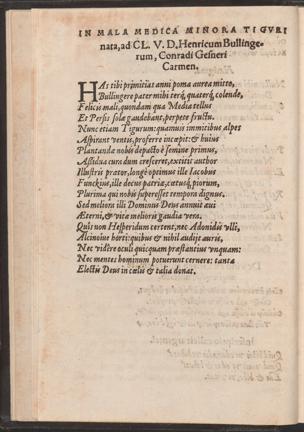 IN MALA MEDICA MINORA TIGVRI
nata, ad CL. V. D. Henricum Bullinge-
rum, Conradi Gesneri
Carmen.
HAs tibi primitias anni poma aurea mitto,
Bullingere pater mihi terq́; quaterq́; colende,
Felicis mali, quondam qua Media tellus
Et Persis solæ gaudebant, perpete fructu.
Nunc etiam Tigurum: quamuis immitibus alpes
Aspirant ventis, proferre incæpit: & huius
Plantandæ nobis depasto è semine primus,
Assidua cura dum cresceret, extitit author
Illustris prætor, longè optimus ille Iacobus
Funckius, ille decus patriæ, cætusq́; piorum,
Plurima qui nobis superesset tempora dignus.
Sed melioris illi Dominus Deus annuit æui
Æterni, & vitæ melioris gaudia vera.
Quis non Hesperidum certent, nec Adonidis vlli,
Alcinoiue horti: quibus & nihil audijt auris,
Nec vidêre oculi quicquam præstantius vnquam:
Nec mentes hominum potuerunt cernere: tanta
Electis Deus in cælis & talia donat.